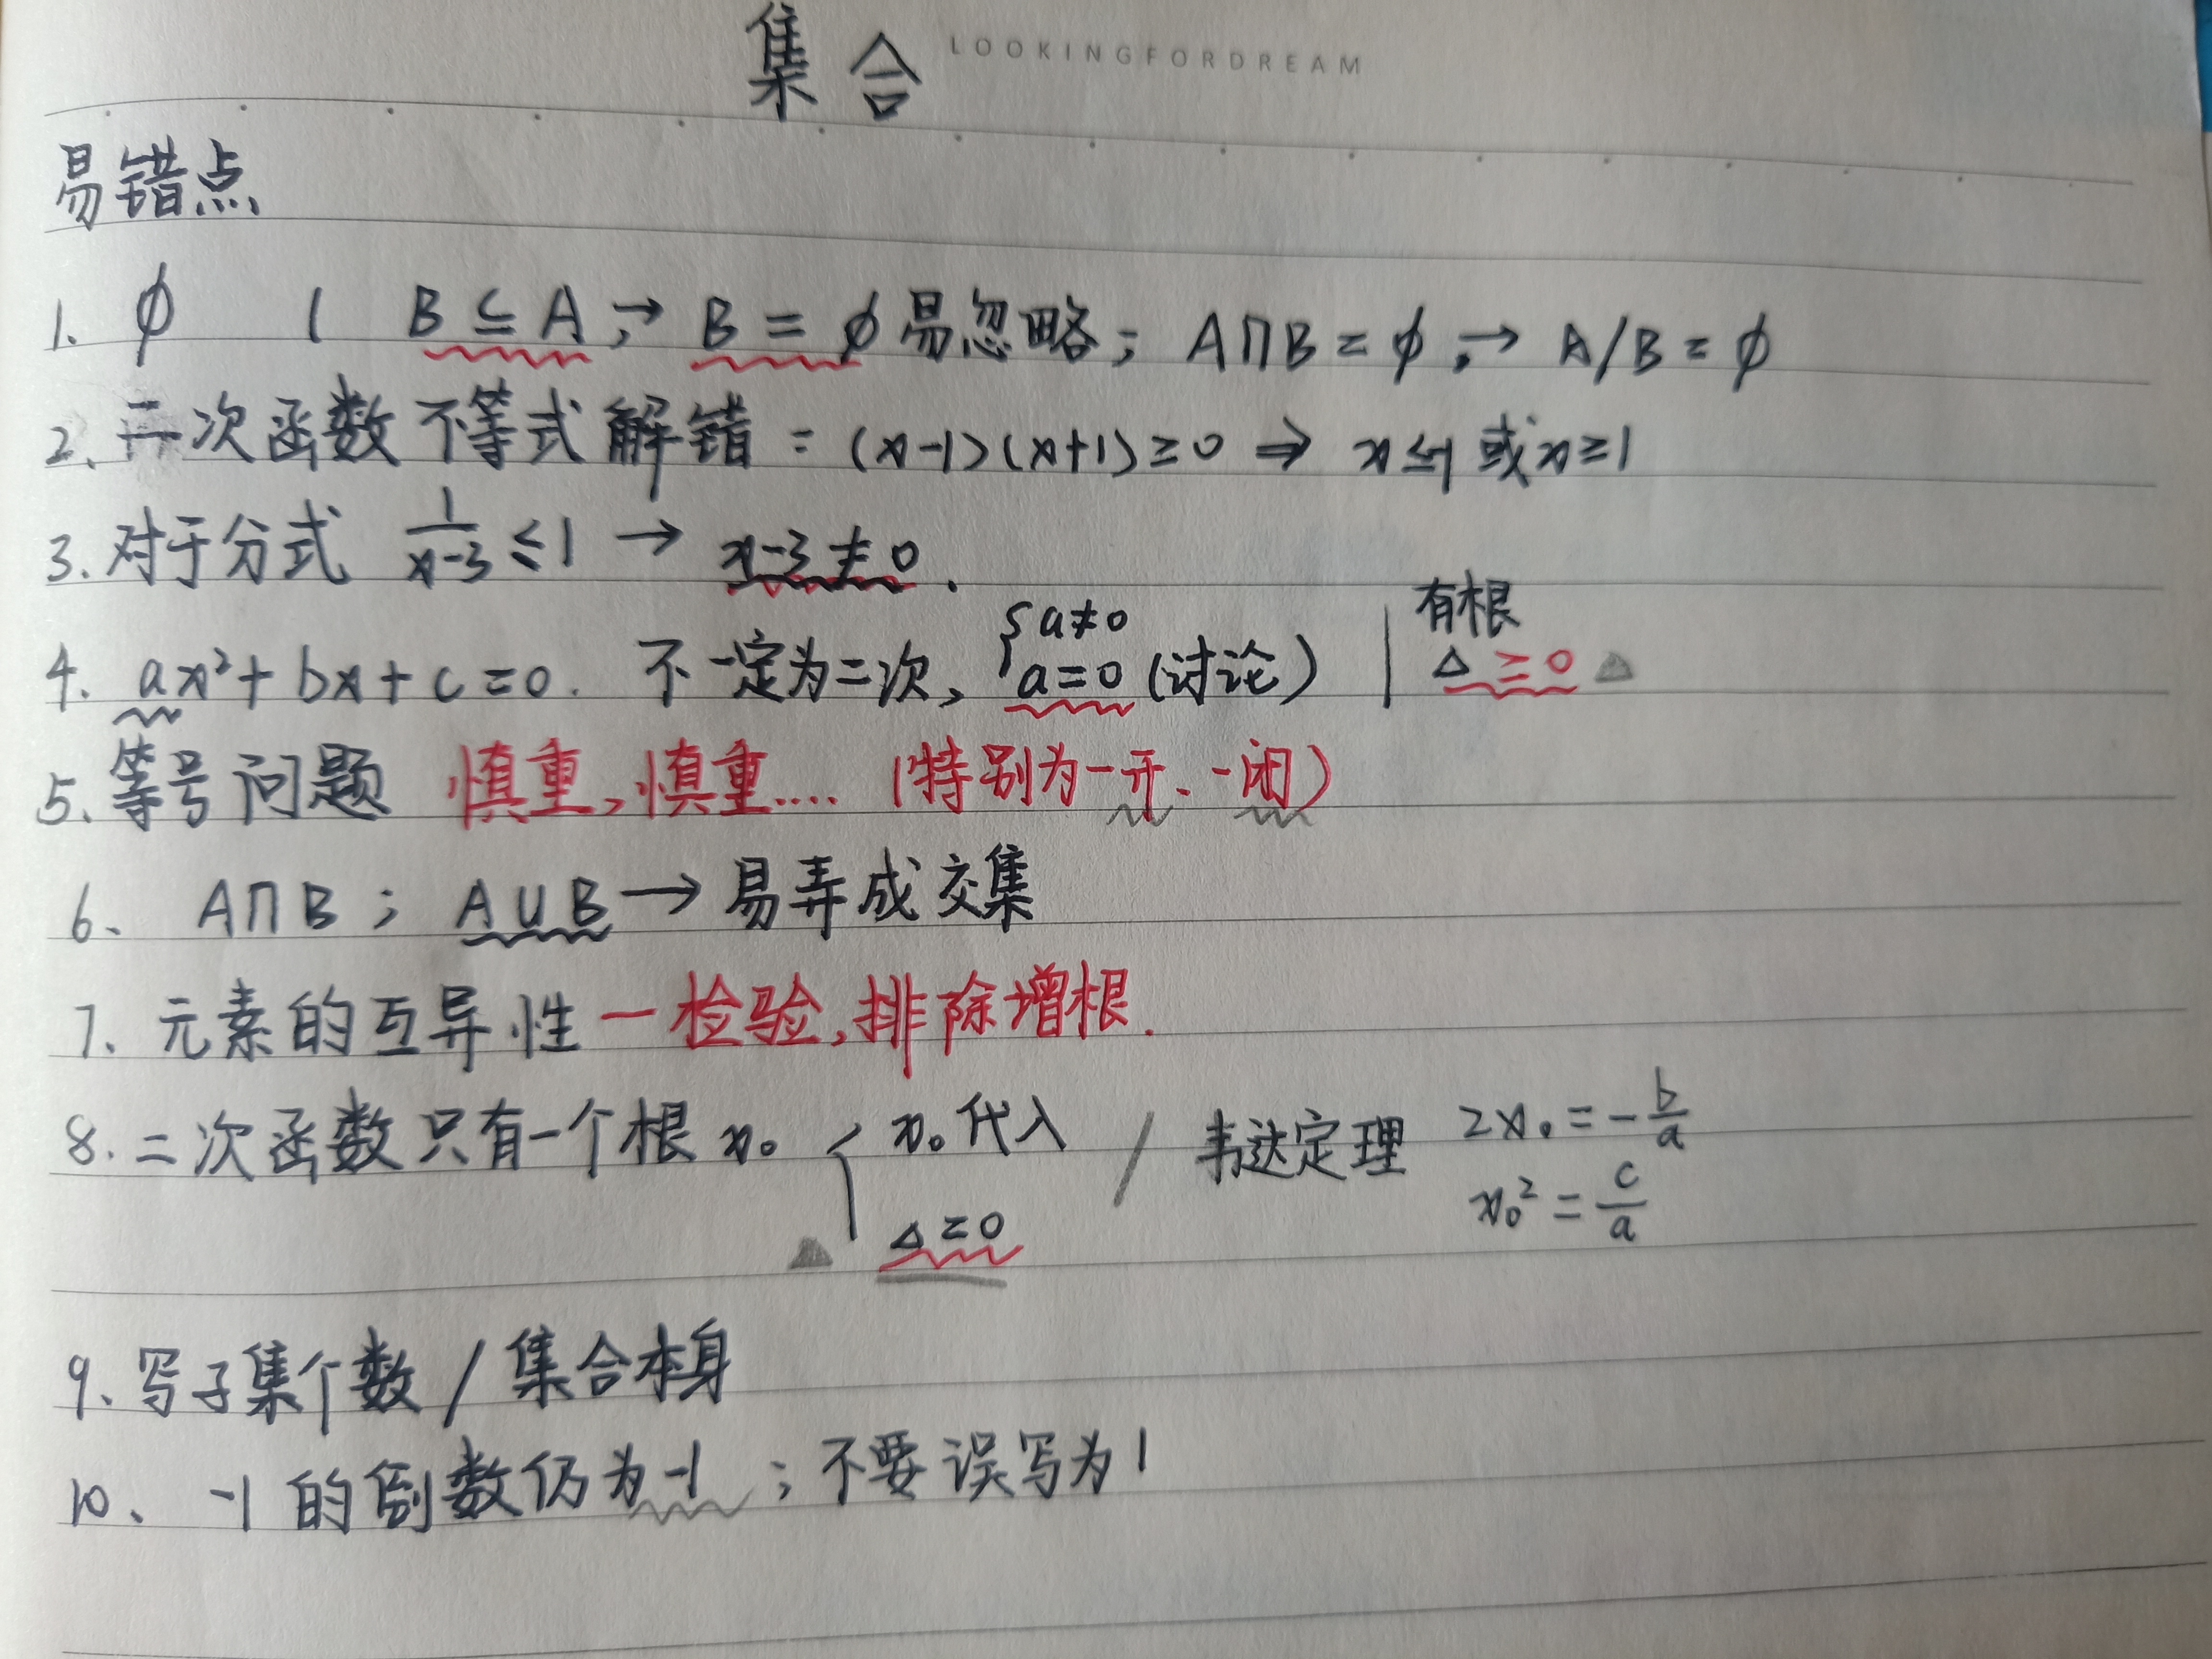 集合 LOOKINGFORDREAM
易错点
1. ∅ ( B⊆A;→ B=∅易忽略; A∩B=∅;→ A/B=∅
2、二次函数不等式解错:(x-1)(x+1)≥0 ⇒ x≤-1或x≥1
3.对于分式 1/(x-3)≤1 → x-3≠0.
4. ax²+bx+c=0. 不一定为二次, { a≠0 a=0(讨论) | 有根 Δ≥0
5、等号问题 慎重,慎重.... (特别为一开、一闭)
6、 A∩B; A∪B→易弄成交集
7、元素的互异性—检验,排除增根.
8.二次函数只有一个根x₀ { x₀代入 Δ=0 / 韦达定理 2x₀=-b/a x₀²=c/a
9、写子集个数/集合本身
10、-1的倒数仍为-1;不要误写为1